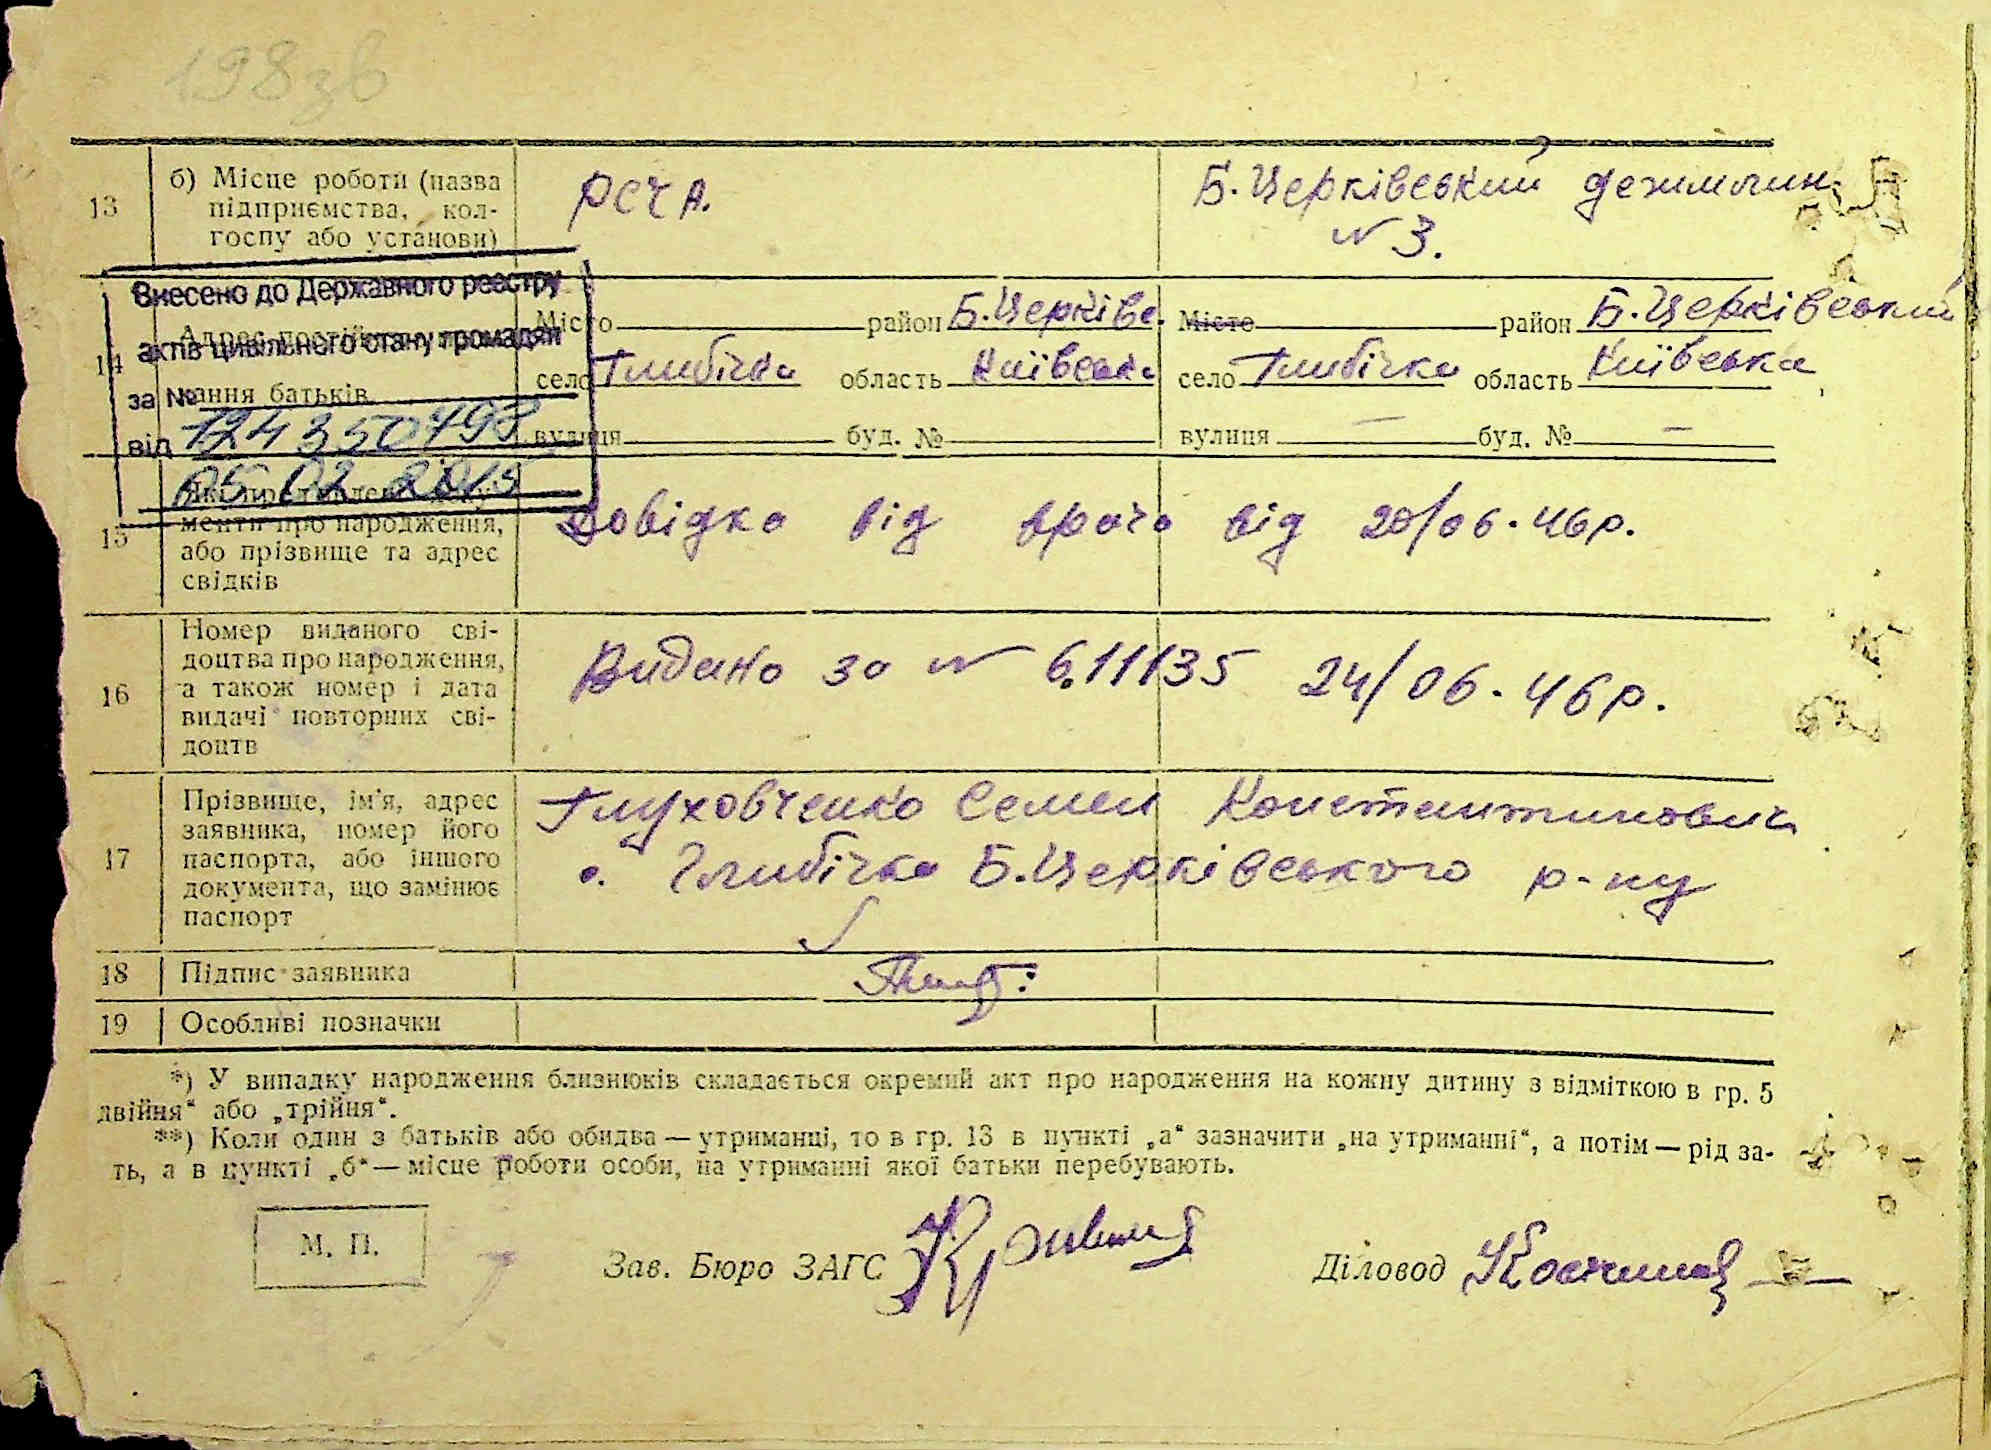 198зв
13
б) Місце роботи (назва
підприємства, кол-
госпу або установи)
РСЧА.
Б. Церківський
№ 3.
Внесено до Державного реєстру
актів цивільного стану громадян
за №
124350498
від
05 02 2015
14
кання батьків
Місто район Б. Церківс.
село Глибічка область Київська
вулиця буд. №
Місто район Б. Церківський
село Глибічка область Київська
вулиця — буд. № —
15
менти про народження,
або прізвище та адрес
свідків
Довідка від врача від 20/06-46р.
16
Номер виданого сві-
доцтва про народження,
а також номер і дата
видачі повторних сві-
доцтв
Видано за № 611135 24/06-46р.
17
Прізвище, ім'я, адрес
заявника, номер його
паспорта, або іншого
документа, що замінює
паспорт
Глуховченко Семен Константинович
с. Глибічка Б. Церківського р-ну
18
Підпис заявника
19
Особливі позначки
*) У випадку народження близнюків складається окремий акт про народження на кожну дитину з відміткою в гр. 5
двійня“ або „трійня“.
**) Коли один з батьків або обидва — утриманці, то в гр. 13 в пункті „а“ зазначити „на утриманні“, а потім — рід за-
ть, а в пункті „б“ — місце роботи особи, на утриманні якої батьки перебувають.
М. П.
Зав. Бюро ЗАГС
Діловод